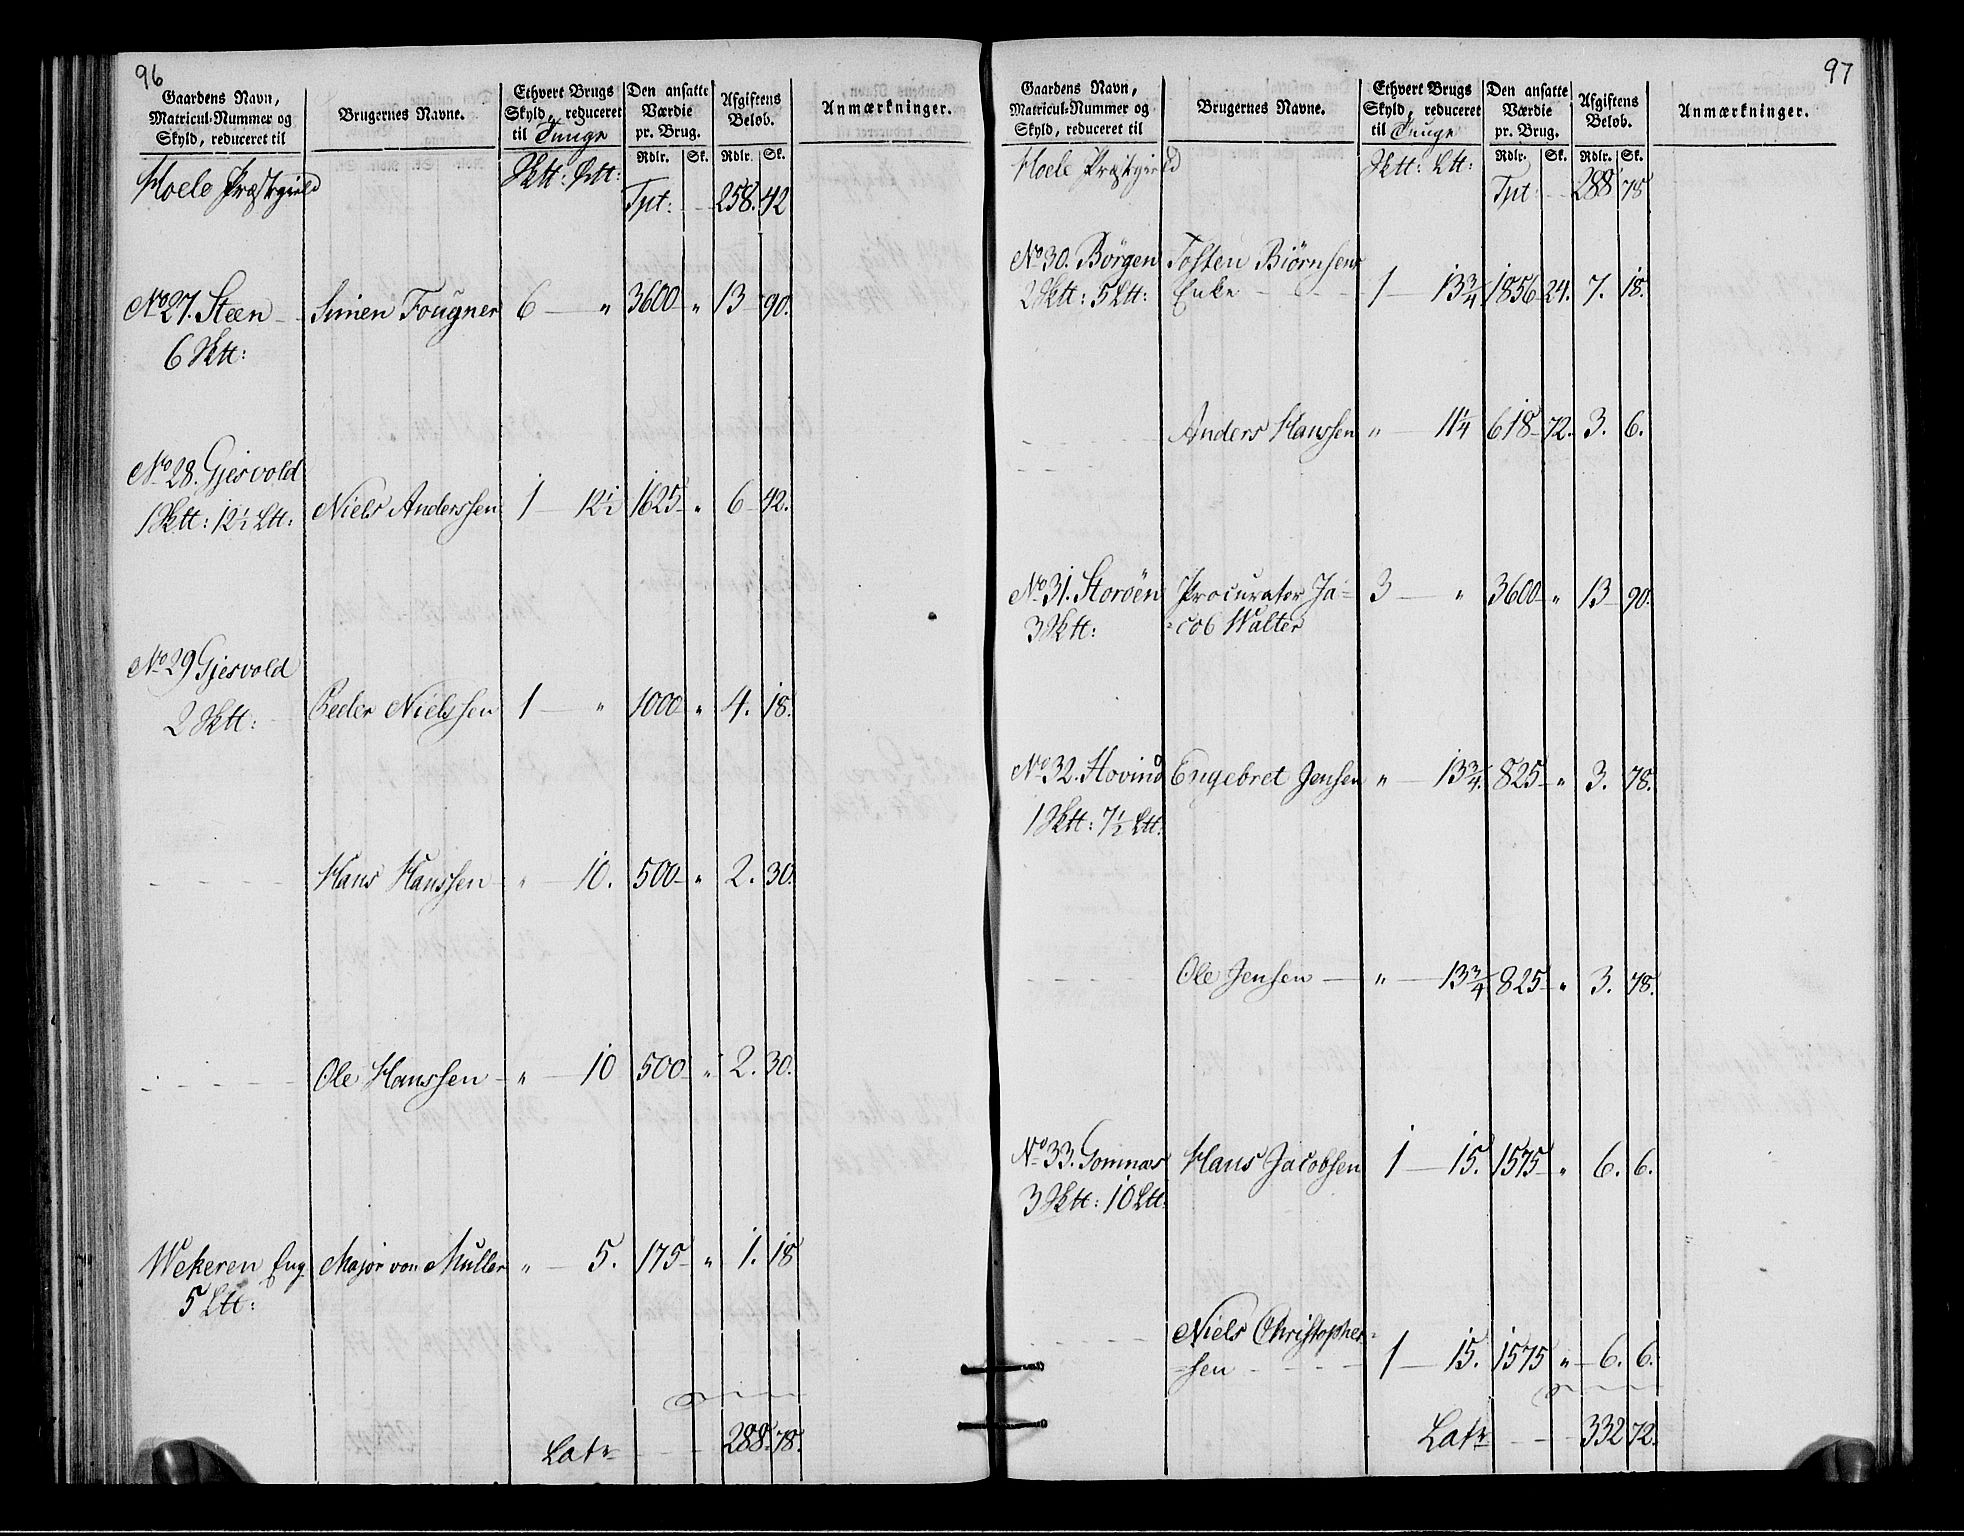 96
Gaardens Navn, Matricul-Nummer og Skyld, reduceret til | Brugernes Navne. | Ethvert Brugs Skyld, reduceret til Tunge | Den ansatte Værdie pr. Brug. Rdlr. Sk. | Afgiftens Beløb. Rdlr. Sk. | Anmærkninger.
Hoele Præstegield Sktt: Ltt: Tpt: 258. 42
No 27. Steen Simen Fougner 6 — " 3600 " 13 90.
6 Sktt:
No 28. Gjesvold
1 Sktt: 12½ Ltt: Niels Anderssen 1 — 12½ 1625 " 6 42.
No 29 Gjesvold
2 Sktt: Peder Nielssen 1 — " 1000 " 4. 18.
Hans Hanssen " — 10. 500 " 2. 30.
Ole Hanssen " — 10 500 " 2. 30.
Wekeren Eng Major von Muller " — 5. 175 " 1. 18
5 Ltt:
Latr 288. 78.
97
Gaardens Navn, Matricul-Nummer og Skyld, reduceret til | Brugernes Navne. | Ethvert Brugs Skyld, reduceret til Tunge | Den ansatte Værdie pr. Brug. Rdlr. Sk. | Afgiftens Beløb. Rdlr. Sk. | Anmærkninger.
Hoele Præstegield Sktt: Ltt: Tpt: 288 78
No 30. Børgen Tosten Biørnsens
2 Sktt: 5 Ltt: Enke 1 — 13¾ 1856 24. 7. 18.
Anders Hanssen " — 11¼ 618 72. 3. 6.
No 31. Storøen Procurator Ja= 3 — " 3600 " 13 90.
3 Sktt: =cob Walter
No 32. Hovind Engebret Jensen " — 13¾ 825 " 3. 78.
1 Sktt: 7½ Ltt:
Ole Jensen " — 13¾ 825 " 3. 78.
No 33. Gomnæs Hans Jacobsen 1 — 15. 1575 " 6. 6.
3 Sktt: 10 Ltt:
Niels Christopher=
=sen 1 — 15. 1575 " 6. 6.
Latr 332 72.